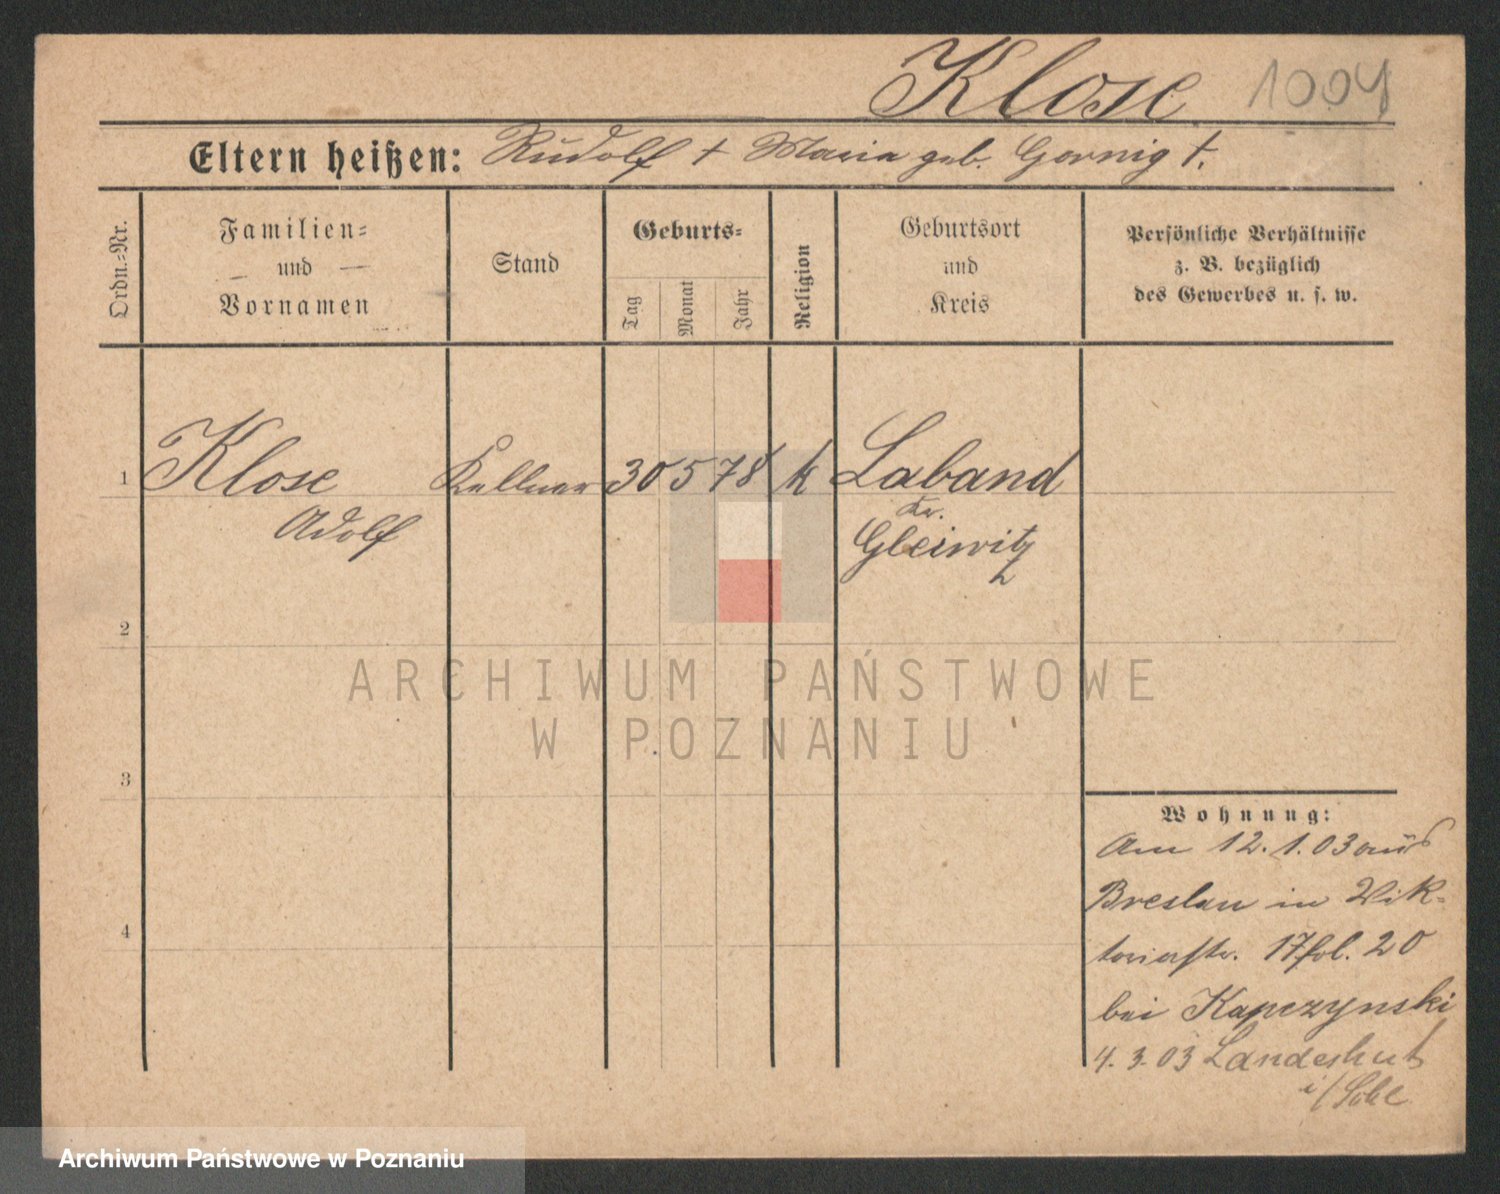 Klose 1004
Eltern heißen: Rudolf † Maria geb. Gornig †.
Ordn.-Nr.
Familien-
und
Vornamen
Stand
Geburts-
Tag
Monat
Jahr
Religion
Geburtsort
und
Kreis
Persönliche Verhältnisse
z. B. bezüglich
des Gewerbes u. s. w.
1 Klose Kellner 30 5 78 k Laband
Kr.
Adolf Gleiwitz
2
ARCHIWUM PAŃSTWOWE
W POZNANIU
3
Wohnung:
Am 12.1.03 aus
Breslau in Vik-
toriastr. 17 fol. 20
4
bei Kapczynski
4.3.03 Landeshut
i/Schl.
Archiwum Państwowe w Poznaniu